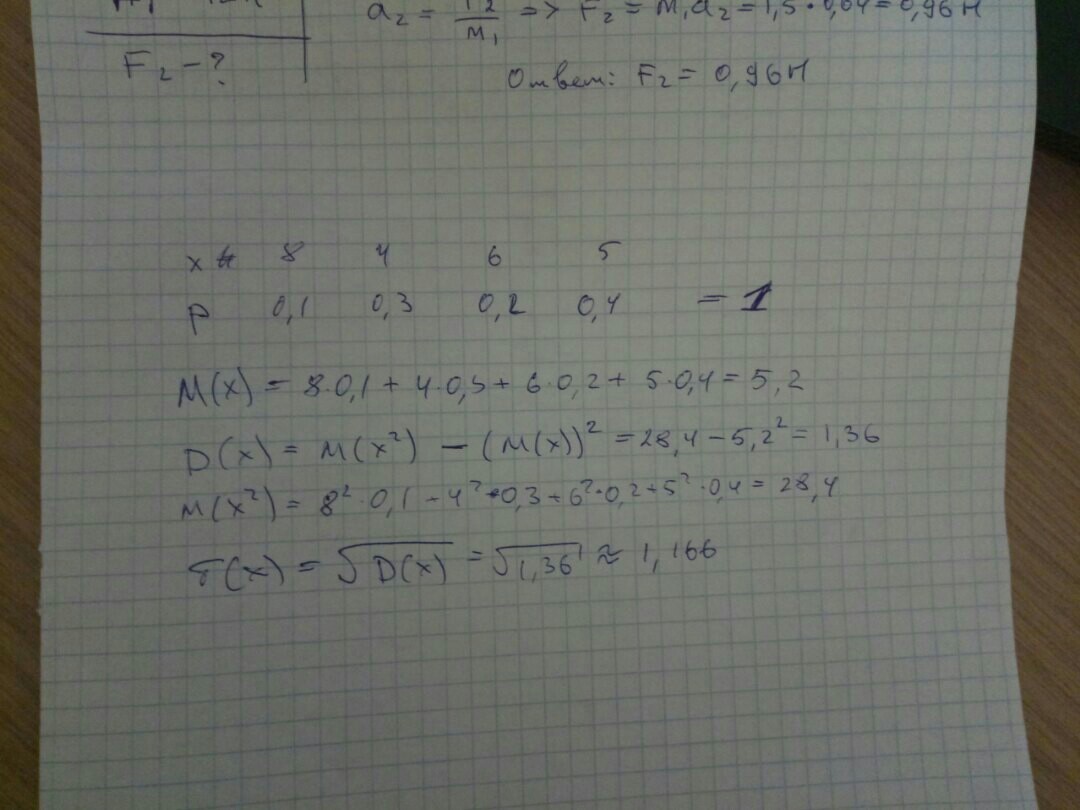 a₂ = F₂/m₁ => F₂ = m₁a₂ = 1,5 · 0,64 = 0,96 Н
F₂ - ?
Ответ: F₂ = 0,96 Н
x 8 4 6 5
P 0,1 0,3 0,2 0,4 = 1
M(x) = 8·0,1 + 4·0,3 + 6·0,2 + 5·0,4 = 5,2
D(x) = M(x²) - (M(x))² = 28,4 - 5,2² = 1,36
M(x²) = 8²·0,1 - 4²·0,3 + 6²·0,2 + 5²·0,4 = 28,4
σ(x) = √D(x) = √1,36 ≈ 1,166